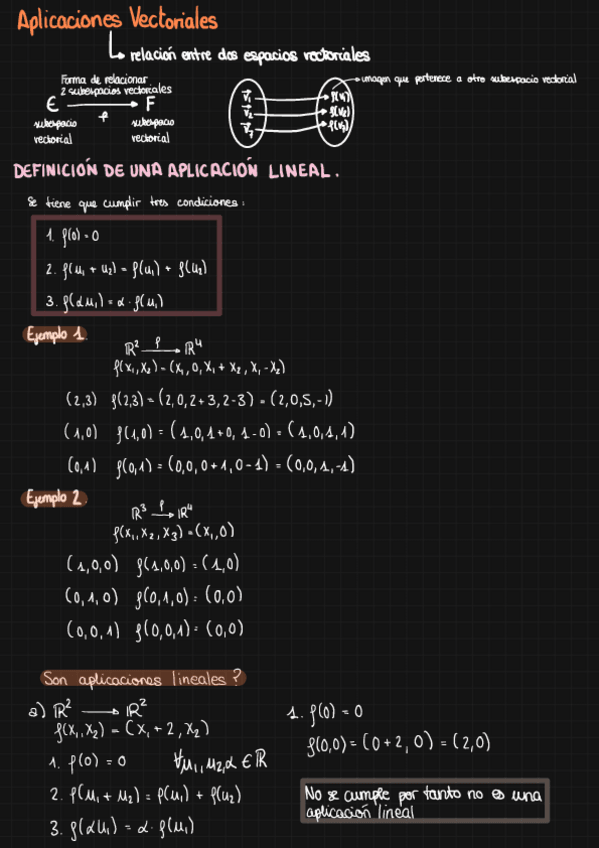 Aplicaciones Vectoriales
relación entre dos espacios vectoriales
Forma de relacionar
2 subespacios vectoriales
E → F
f
subespacio vectorial
subespacio vectorial
v₁ f(v₁)
v₂ f(v₂)
v₃ f(v₃)
imagen que pertenece a otro subespacio vectorial
DEFINICIÓN DE UNA APLICACIÓN LINEAL.
Se tiene que cumplir tres condiciones:
1. f(0) = 0
2. f(u₁ + u₂) = f(u₁) + f(u₂)
3. f(αu₁) = α · f(u₁)
Ejemplo 1.
ℝ² f→ ℝ⁴
f(x₁,x₂) = (x₁, 0, x₁ + x₂, x₁ - x₂)
(2,3) f(2,3) = (2,0,2+3,2-3) = (2,0,5,-1)
(1,0) f(1,0) = (1,0,1+0,1-0) = (1,0,1,1)
(0,1) f(0,1) = (0,0,0+1,0-1) = (0,0,1,-1)
Ejemplo 2.
ℝ³ f→ ℝ⁴
f(x₁,x₂,x₃) = (x₁,0)
(1,0,0) f(1,0,0) = (1,0)
(0,1,0) f(0,1,0) = (0,0)
(0,0,1) f(0,0,1) = (0,0)
Son aplicaciones lineales?
a) ℝ² → ℝ²
f(x₁,x₂) = (x₁ + 2, x₂)
1. f(0) = 0 ∀u₁,u₂,α ∈ ℝ
2. f(u₁ + u₂) = f(u₁) + f(u₂)
3. f(αu₁) = α · f(u₁)
1. f(0) = 0
f(0,0) = (0+2, 0) = (2,0)
No se cumple por tanto no es una
aplicación lineal